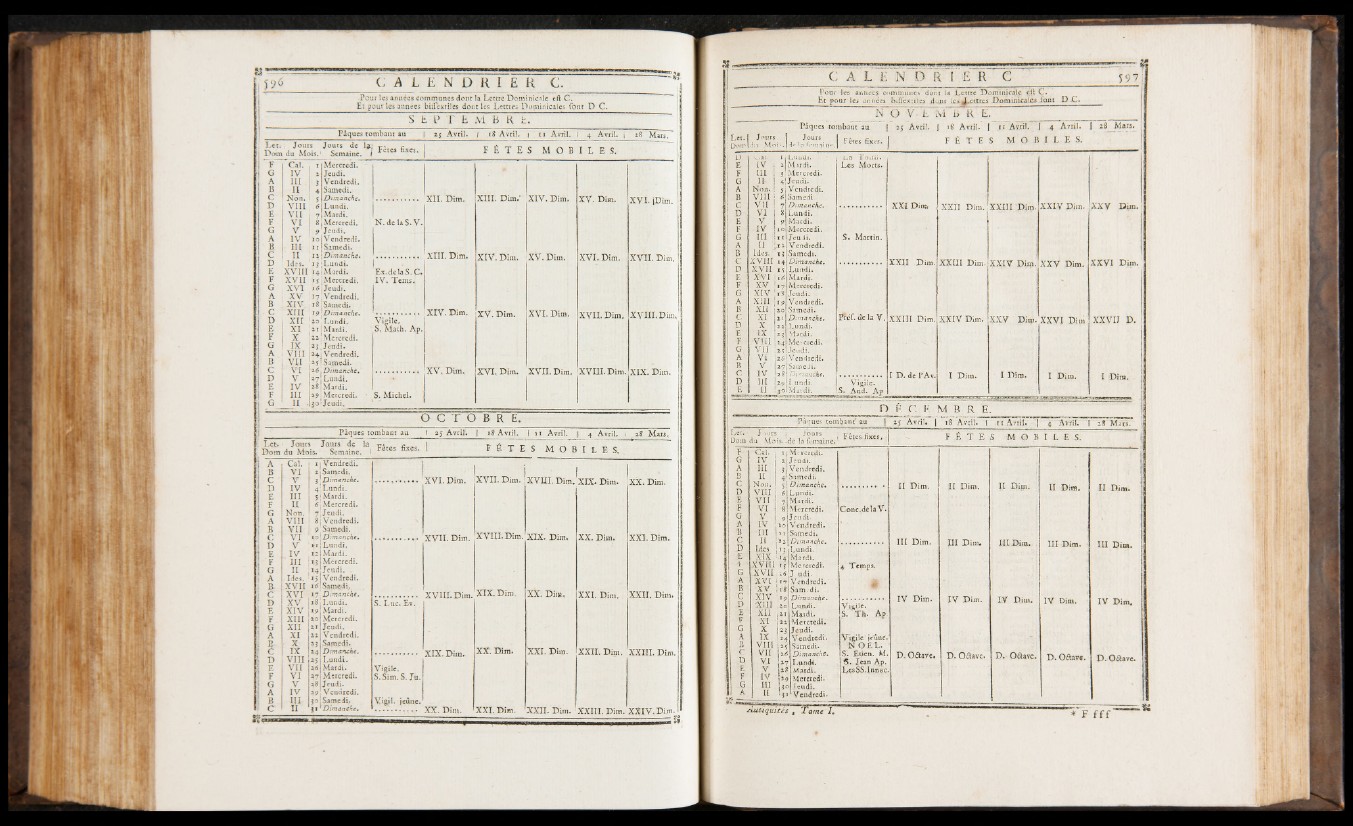 596 CALENDRIER C.
Pour les années communes dont la Lettre Dominicale est C.
Et pour les années bissextiles dont les Lettres Dominicales sont D C.
SEPTEMBRE.
Pâques tombant au 25 Avril. 18 Avril. 11 Avril. 4 Avril. 28 Mars.
Let. Jours Jours de la Fêtes fixes. FÊTES MOBILES.
Dom du Mois. Semaine.
F Cal. 1 Mercredi.
G IV 2 Jeudi.
A III 3 Vendredi.
B II 4 Samedi.
C Non. 5 Dimanche. ........... XII. Dim. XIII. Dim. XIV. Dim. XV. Dim. XVI. Dim.
D VIII 6 Lundi.
E VII 7 Mardi.
F VI 8 Mercredi. N. de la S. V.
G V 9 Jeudi.
A IV 10 Vendredi.
B III 11 Samedi.
C II 12 Dimanche. ........... XIII. Dim. XIV. Dim. XV. Dim. XVI. Dim. XVII. Dim.
D Ides. 13 Lundi.
E XVIII 14 Mardi. Ex. de la S. C.
F XVII 15 Mercredi. IV. Tems.
G XVI 16 Jeudi.
A XV 17 Vendredi.
B XIV 18 Samedi.
C XIII 19 Dimanche. ........... XIV. Dim. XV. Dim. XVI. Dim. XVII. Dim. XVIII. Dim.
D XII 20 Lundi. Vigile.
E XI 21 Mardi. S. Math. Ap.
F X 22 Mercredi.
G IX 23 Jeudi.
A VIII 24 Vendredi.
B VII 25 Samedi.
C VI 26 Dimanche. ........... XV. Dim. XVI. Dim. XVII. Dim. XVIII. Dim. XIX. Dim.
D V 27 Lundi.
E IV 28 Mardi.
F III 29 Mercredi. S. Michel.
G II 30 Jeudi.
OCTOBRE.
Pâques tombant au 25 Avril. 18 Avril. 11 Avril. 4 Avril. 28 Mars.
Let. Jours Jours de la Fêtes fixes. FÊTES MOBILES.
Dom du Mois. Semaine.
A Cal. 1 Vendredi.
B VI 2 Samedi.
C V 3 Dimanche. ........... XVI. Dim. XVII. Dim. XVIII. Dim. XIX. Dim. XX. Dim.
D IV 4 Lundi.
E III 5 Mardi.
F II 6 Mercredi.
G Non. 7 Jeudi.
A VIII 8 Vendredi.
B VII 9 Samedi.
C VI 10 Dimanche. ........... XVII. Dim. XVIII. Dim. XIX. Dim. XX. Dim. XXI. Dim.
D V 11 Lundi.
E IV 12 Mardi.
F III 13 Mercredi.
G II 14 Jeudi.
A Ides. 15 Vendredi.
B XVII 16 Samedi.
C XVI 17 Dimanche. ........... XVIII. Dim. XIX. Dim. XX. Dim. XXI. Dim. XXII. Dim.
D XV 18 Lundi. S. Luc. Ev.
E XIV 19 Mardi.
F XIII 20 Mercredi.
G XII 21 Jeudi.
A XI 22 Vendredi.
B X 23 Samedi.
C IX 24 Dimanche. ........... XIX. Dim. XX. Dim. XXI. Dim. XXII. Dim. XXIII. Dim.
D VIII 25 Lundi.
E VII 26 Mardi. Vigile.
F VI 27 Mercredi. S. Sim. S. Ju.
G V 28 Jeudi.
A IV 29 Vendredi.
B III 30 Samedi. Vigil. jeûne.
C II 31 Dimanche. ........... XX. Dim. XXI. Dim. XXII. Dim. XXIII. Dim. XXIV. Dim.
CALENDRIER C 597
Pour les années communes dont la Lettre Dominicale est C.
Et pour les années bissextiles dont les Lettres Dominicales sont D C.
NOVEMBRE.
Pâques tombant au 25 Avril. 18 Avril. 11 Avril. 4 Avril. 28 Mars.
Let. Jours Jours Fêtes fixes. FÊTES MOBILES.
Dom du Mois. de la semaine.
D Cal. 1 Lundi.
E IV 2 Mardi. Les Morts.
F III 3 Mercredi.
G II 4 Jeudi.
A Non. 5 Vendredi.
B VIII 6 Samedi.
C VII 7 Dimanche. ........... XXI Dim. XXII Dim. XXIII Dim. XXIV Dim. XXV Dim.
D VI 8 Lundi.
E V 9 Mardi.
F IV 10 Mercredi.
G III 11 Jeudi. S. Martin.
A II 12 Vendredi.
B Ides. 13 Samedi.
C XVIII 14 Dimanche. ........... XXII Dim. XXIII Dim. XXIV Dim. XXV Dim. XXVI Dim.
D XVII 15 Lundi.
E XVI 16 Mardi.
F XV 17 Mercredi.
G XIV 18 Jeudi.
A XIII 19 Vendredi.
B XII 20 Samedi.
C XI 21 Dimanche. Prés. de la V. XXIII Dim. XXIV Dim. XXV Dim. XXVI Dim XXVII D.
D X 22 Lundi.
E IX 23 Mardi.
F VIII 24 Mercredi.
G VII 25 Jeudi.
A VI 26 Vendredi.
B V 27 Samedi.
C IV 28 Dimanche. ........... I D. de l'Av. I Dim. I Dim. I Dim. I Dim.
D III 29 Lundi. Vigile.
E II 30 Mardi. S. And. Ap
DÉCEMBRE.
Pâques tombant au 25 Avril. 18 Avril. 11 Avril. 4 Avril. 28 Mars.
Let. Jours Jours Fêtes fixes. FÊTES MOBILES.
Dom du Mois. de la semaine.
F Cal. 1 Mercredi.
G IV 2 Jeudi.
A III 3 Vendredi.
B II 4 Samedi.
C Non. 5 Dimanche. ......... II Dim. II Dim. II Dim. II Dim. II Dim.
D VIII 6 Lundi.
E VII 7 Mardi.
F VI 8 Mercredi. Conc. de la V.
G V 9 Jeudi.
A IV 10 Vendredi.
B III 11 Samedi.
C II 12 Dimanche. ........... III Dim. III Dim. III Dim. III Dim. III Dim.
D Ides 13 Lundi.
E XIX 14 Mardi.
F XVIII 15 Mercredi. 4 Temps.
G XVII 16 Jeudi.
A XVI 17 Vendredi.
B XV 18 Samedi.
C XIV 19 Dimanche. ........... IV Dim. IV Dim. IV Dim. IV Dim. IV Dim.
D XIII 20 Lundi. Vigile.
E XII 21 Mardi. S. Th. Ap
F XI 22 Mercredi.
G X 23 Jeudi.
A IX 24 Vendredi. Vigile jeûne.
B VIII 25 Samedi. NOEL.
C VII 26 Dimanche. S. Etien. M. D. Octave. D. Octave. D. Octave. D. Octave. D. Octave.
D VI 27 Lundi. S. Jean Ap.
E V 28 Mardi. Les SS. Innoc.
F IV 29 Mercredi.
G III 30 Jeudi.
A II 31 Vendredi.
Antiquités, Tome I. * Ffff